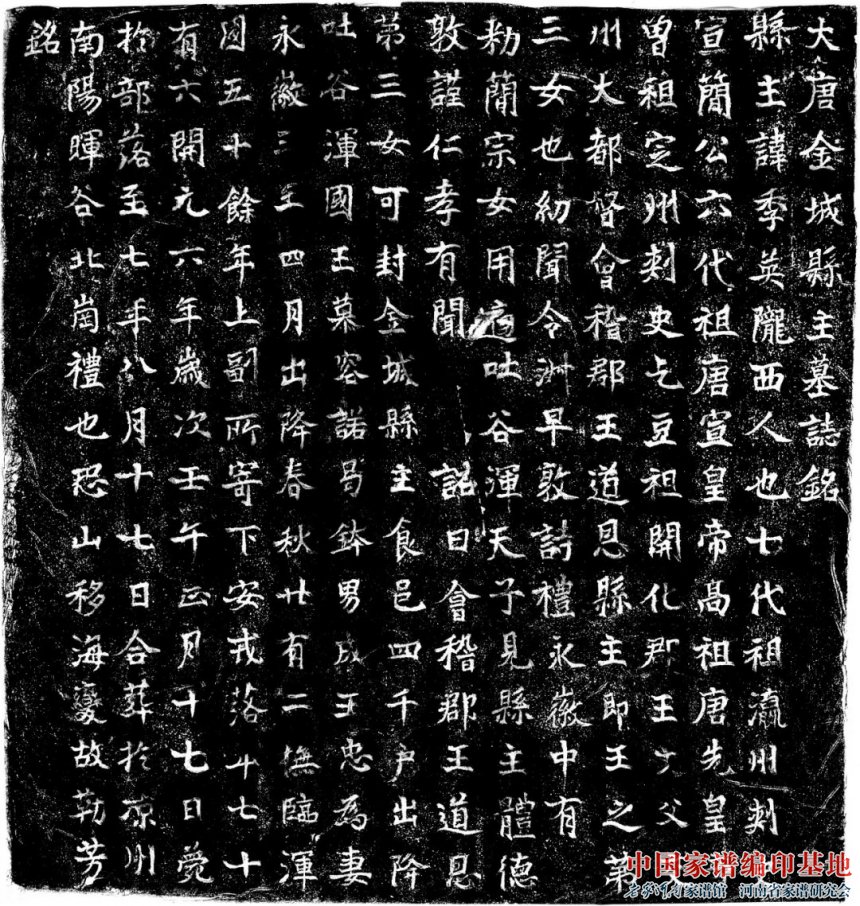 大唐金城縣主墓誌銘
縣主諱季英隴西人也七代祖瀛州刺史
宣簡公六代祖唐宣皇帝高祖唐先皇
曾祖定州刺史乞豆祖開化郡王文父
州大都督會稽郡王道恩縣主即王之第
三女也幼聞令淑早敦詩禮永徽中有
敕簡宗女用適吐谷渾天子見縣主體德
敦謹仁孝有聞 詔曰會稽郡王道恩
第三女可封金城縣主食邑四千戶出降
吐谷渾國王慕容諾曷鉢男成王忠為妻
永徽三年四月出降春秋廿有二撫臨渾
國五十餘年上副所寄下安戎落年七十
有六開元六年歲次壬午正月十七日薨
於部落至七年八月十七日合葬於凉州
南陽暉谷北崗禮也恐山移海變故勒芳
銘
中国家谱编印基地
家谱馆 河南省家谱研究会